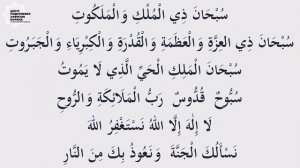 سُبْحَانَ ذِي الْمُلْكِ وَالْمَلَكُوتِ
سُبْحَانَ ذِي الْعِزَّةِ وَالْعَظَمَةِ وَالْقُدْرَةِ وَالْكِبْرِيَاءِ وَالْجَبَرُوتِ
سُبْحَانَ الْمَلِكِ الْحَيِّ الَّذِي لَا يَمُوتُ
سُبُّوحٌ قُدُّوسٌ رَبُّ الْمَلَائِكَةِ وَالرُّوحِ
لَا إِلَهَ إِلَّا اللهُ نَسْتَغْفِرُ اللهَ
نَسْأَلُكَ الْجَنَّةَ وَنَعُوذُ بِكَ مِنَ النَّارِ